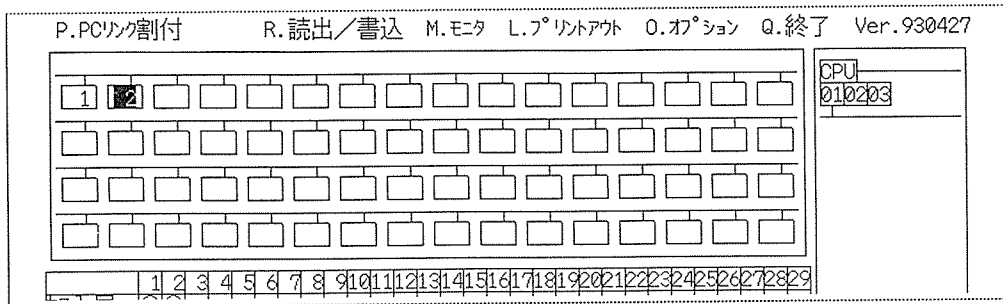 P.PCリンク割付 R.読出／書込 M.モニタ L.プリントアウト O.オプション Q.終了 Ver.930427
1 2
CPU
01 02 03
1 2 3 4 5 6 7 8 9 10 11 12 13 14 15 16 17 18 19 20 21 22 23 24 25 26 27 28 29